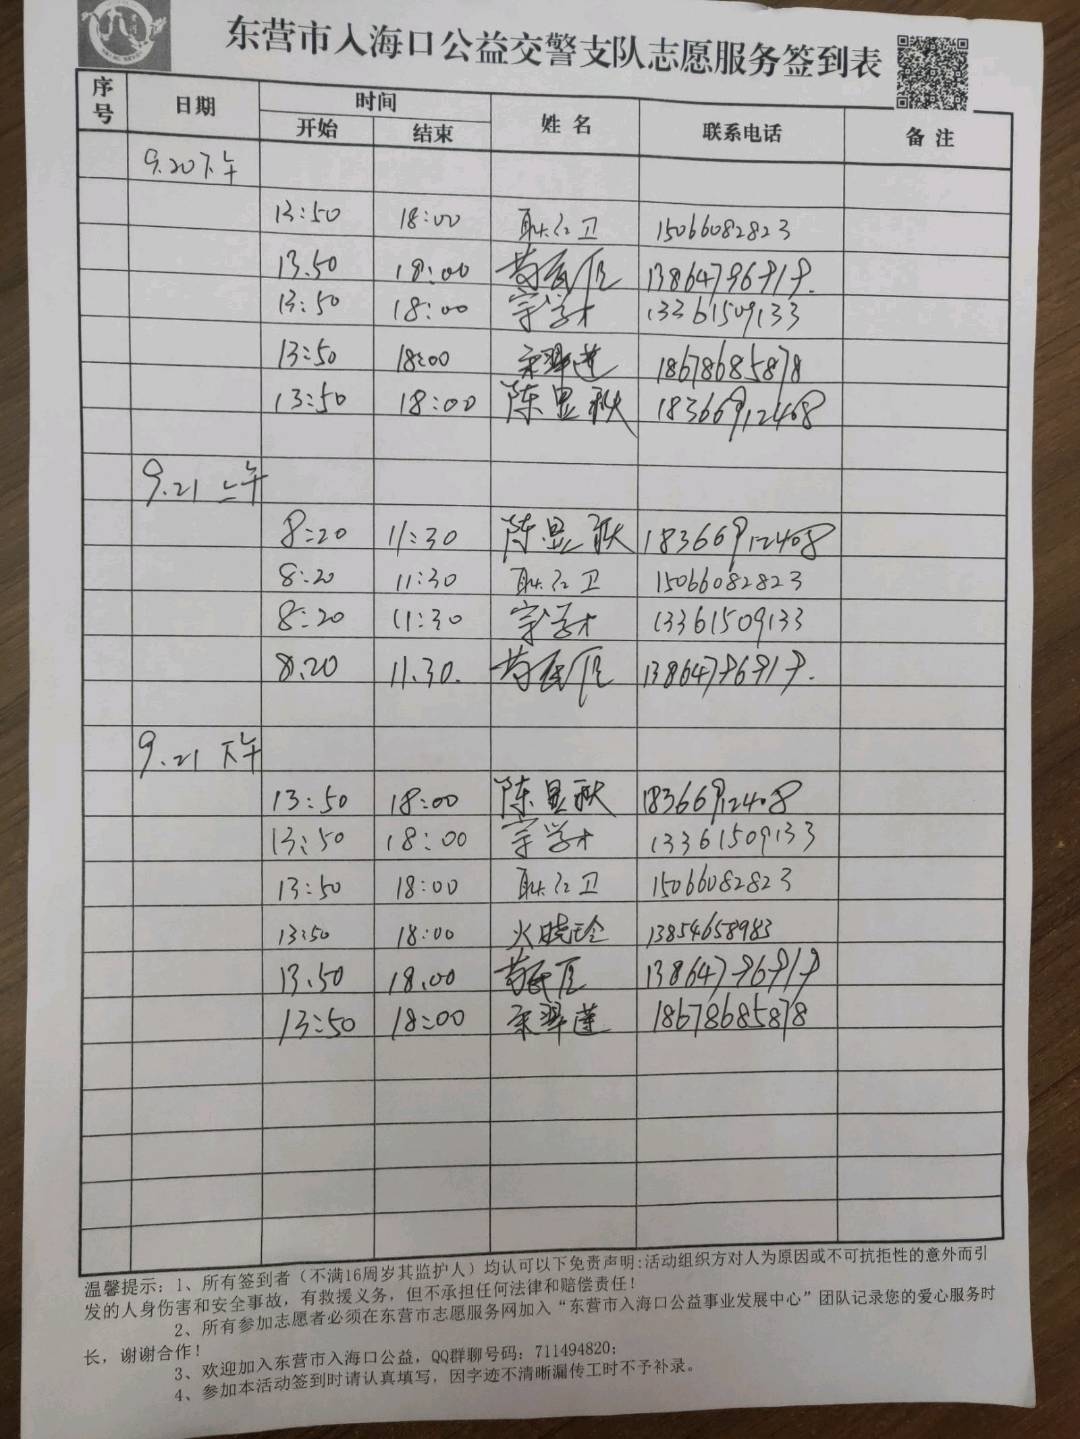 东营市入海口公益交警支队志愿服务签到表
序号 日期 时间 姓名 联系电话 备注
开始 结束
9.20下午
13:50 18:00 耿红卫 15066082823
13.50 18:00 13864796919.
13:50 18:00 宗学才 13361509133
13:50 18:00 宋翠莲 18678685878
13:50 18:00 陈显秋 18366912408
9.21 上午
8:20 11:30 陈显秋 18366912408
8:20 11:30 耿红卫 15066082823
8:20 11:30 宗学才 13361509133
8.20 11.30. 13864796919.
9.21 下午
13:50 18:00 陈显秋 18366912408
13:50 18:00 宗学才 13361509133
13:50 18:00 耿红卫 15066082823
13:50 18:00 火晓玲 13854658983
13.50 18.00 13864796919
13:50 18:00 宋翠莲 18678685878
温馨提示：1、所有签到者（不满16周岁其监护人）均认可以下免责声明：活动组织方对人为原因或不可抗拒性的意外而引
发的人身伤害和安全事故，有救援义务，但不承担任何法律和赔偿责任！
2、所有参加志愿者必须在东营市志愿服务网加入“东营市入海口公益事业发展中心”团队记录您的爱心服务时
长，谢谢合作！
3、欢迎加入东营市入海口公益，QQ群聊号码：711494820；
4、参加本活动签到时请认真填写，因字迹不清晰漏传工时不予补录。